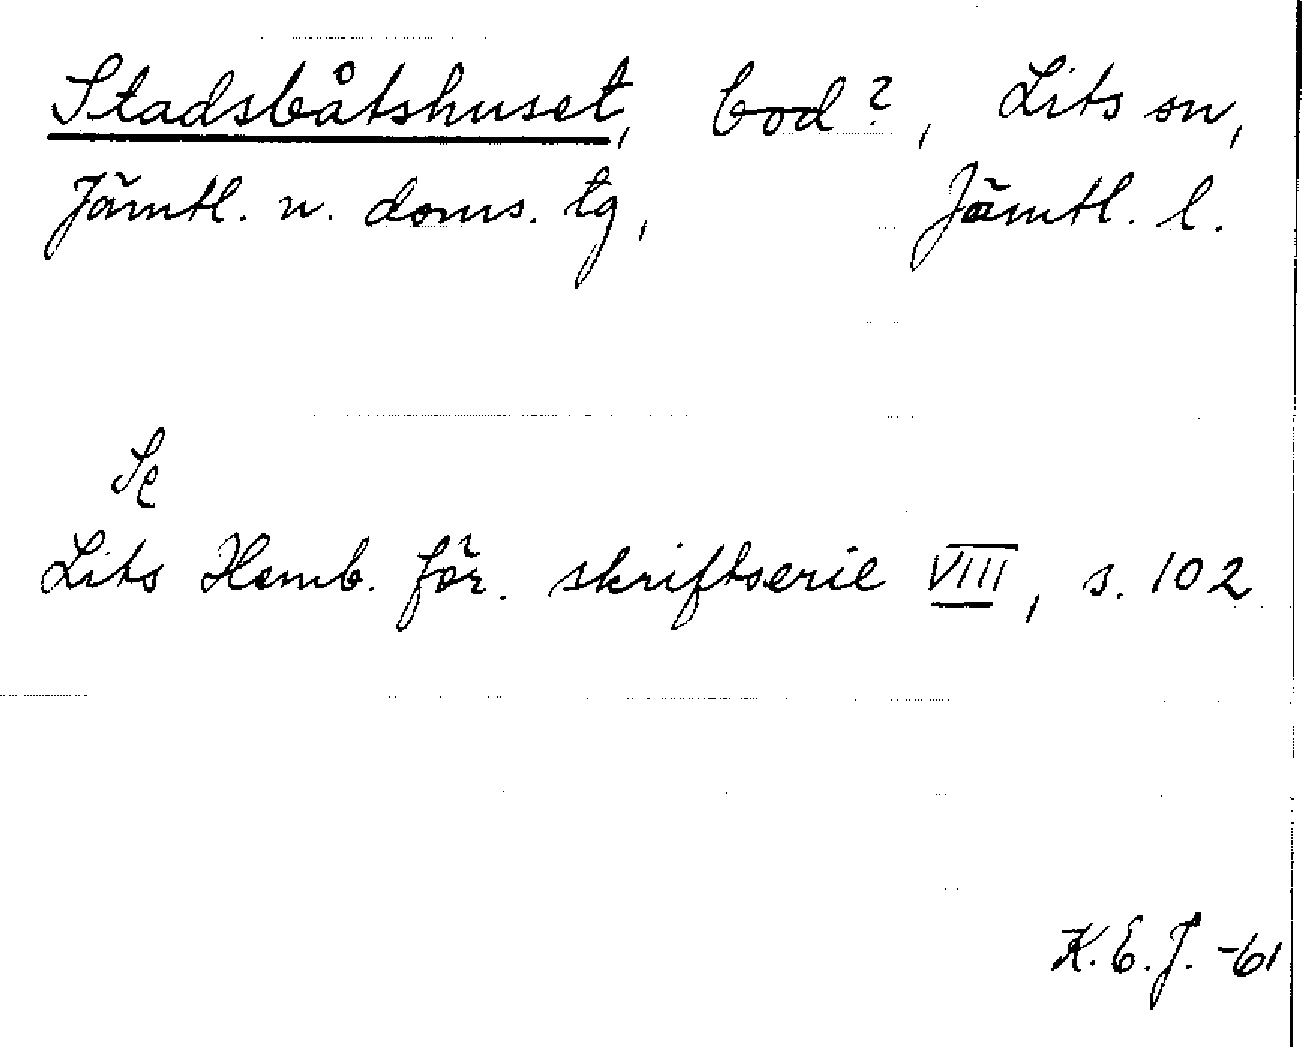 Stadsbåtshuset, bod?, Lits sn,
Jämtl. n. doms. tg, Jämtl. l.
Se
Lits Hemb. för. skriftserie VIII, s. 102
K.E.J. -61